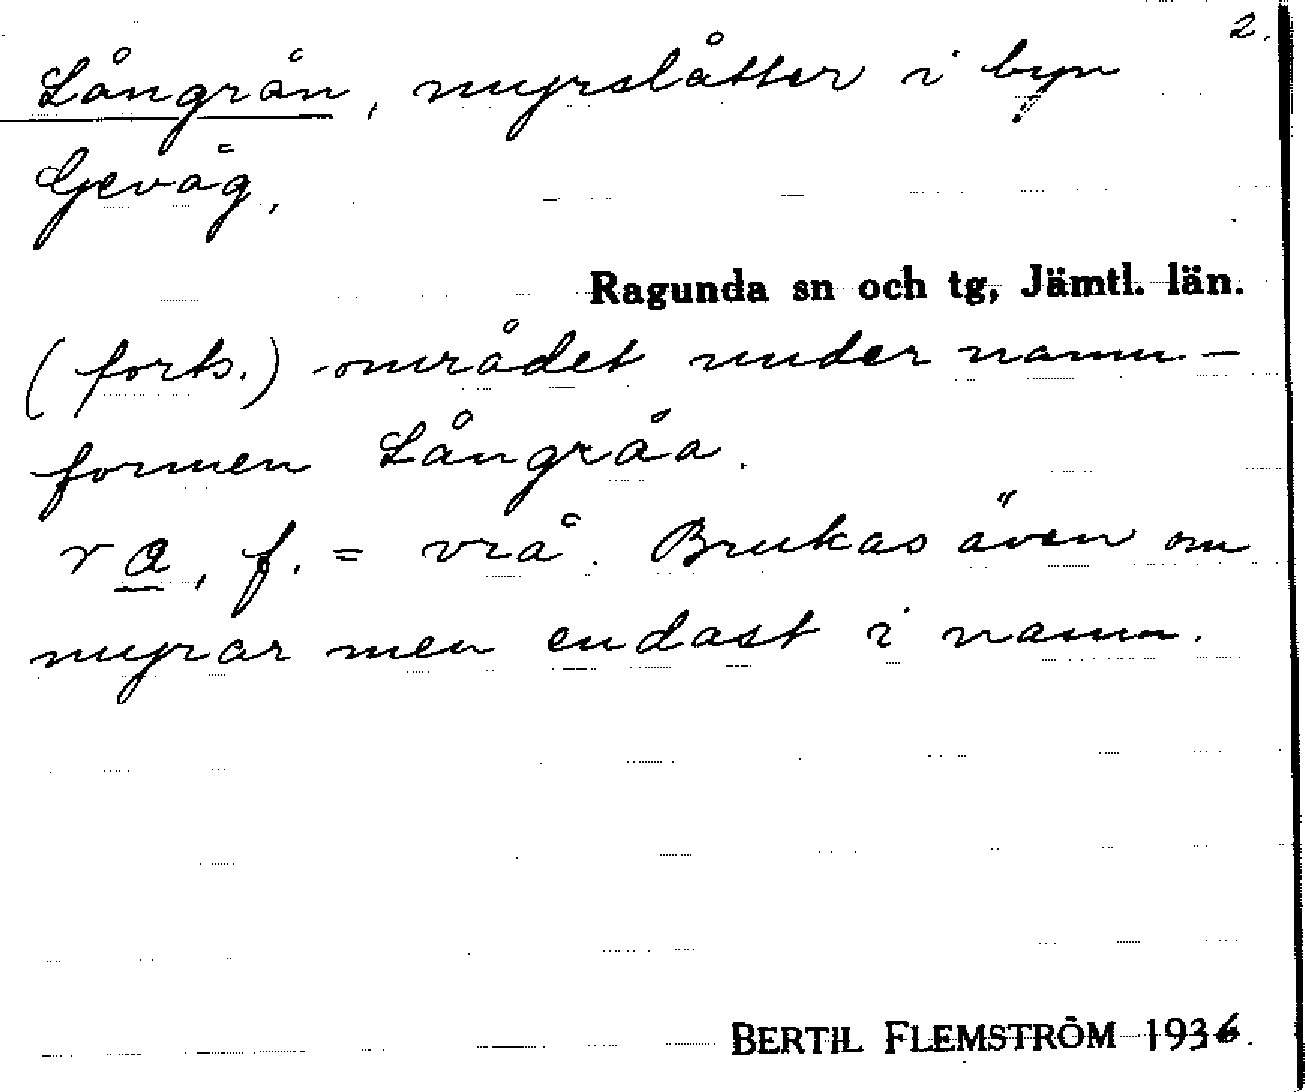 2.
Långrån, myrslåtter i byn
Gevåg,
Ragunda sn och tg, Jämtl. län.
(forts.) området under namn-
formen Långråa.
ra, f. = vrå. Brukas även om
myrar men endast i namn.
BERTIL FLEMSTRÖM 1936.